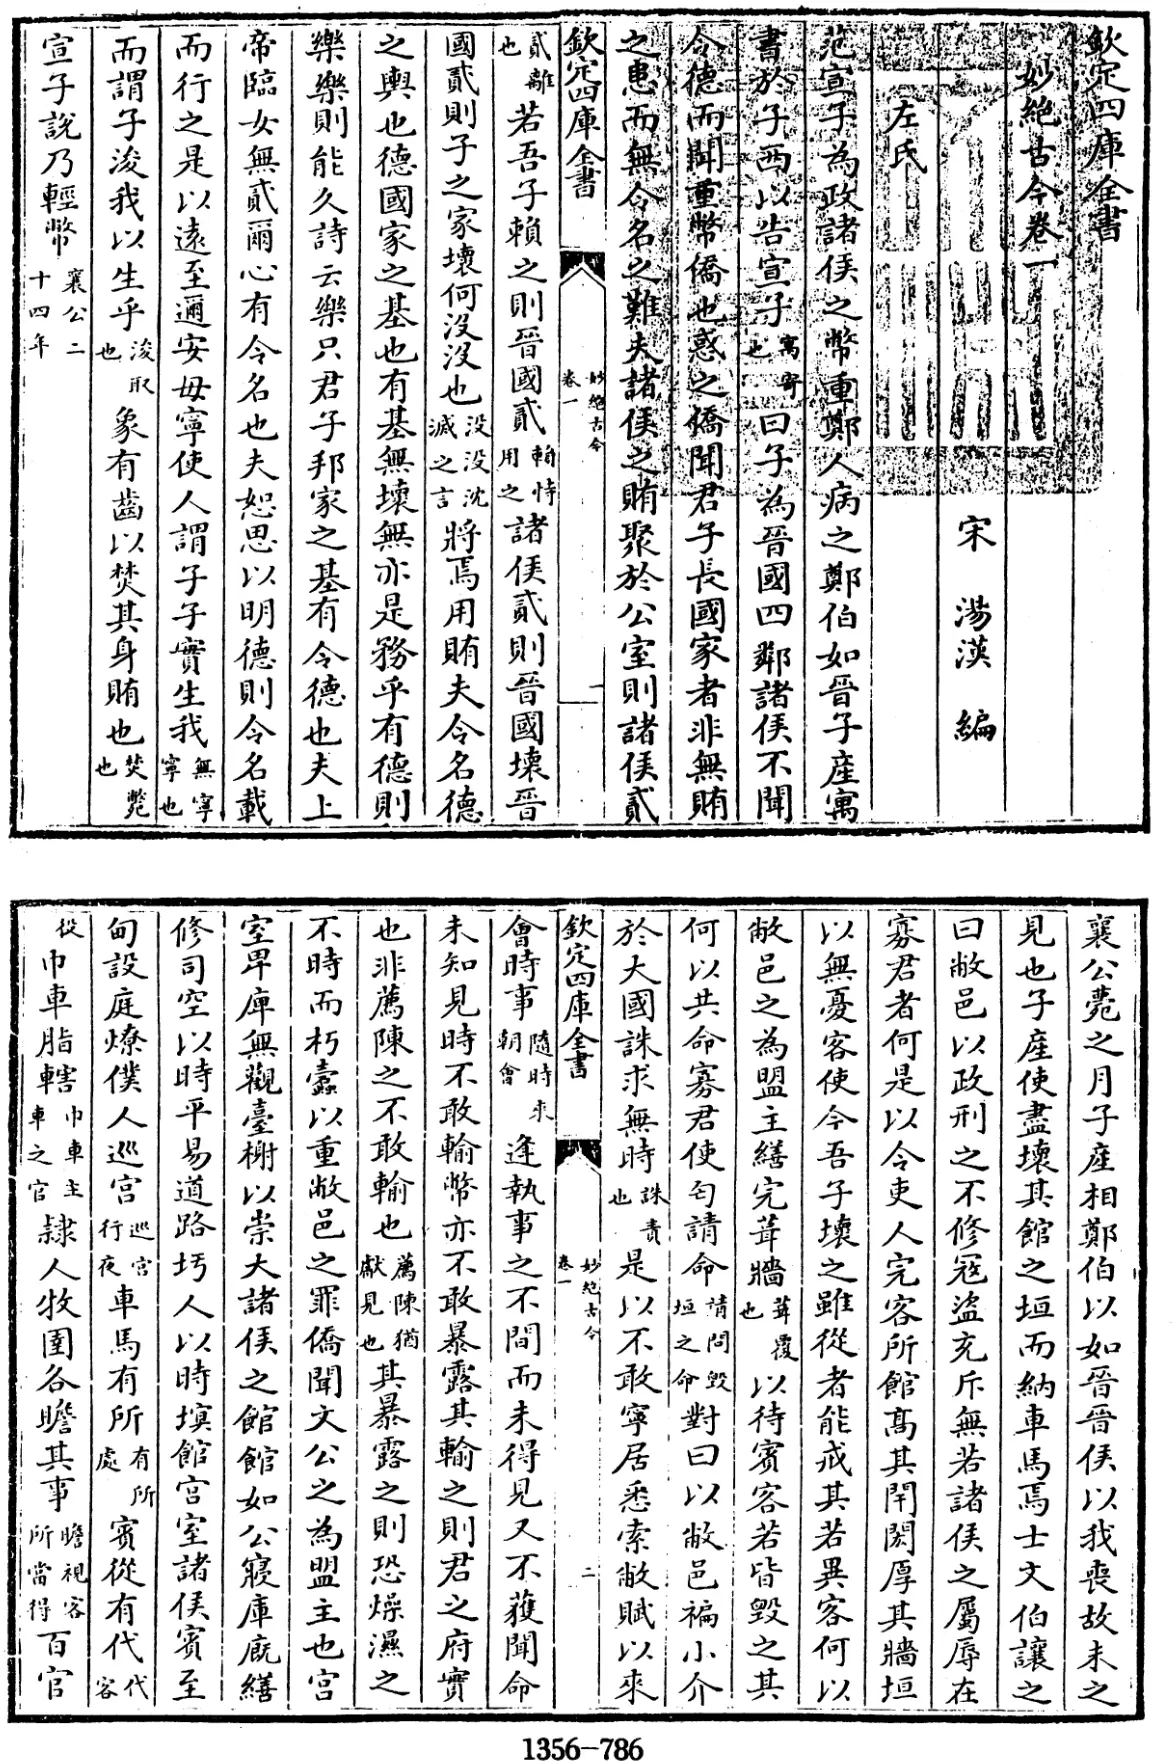 欽定四庫全書
妙絶古今卷一
宋 湯漢 編
左氏
范宣子為政諸侯之幣重鄭人病之鄭伯如晉子產寓
書於子西以告宣子寓寄也曰子為晉國四鄰諸侯不聞
令德而聞重幣僑也惑之僑聞君子長國家者非無賄
之患而無令名之難夫諸侯之賄聚於公室則諸侯貳
欽定四庫全書 妙絶古今 卷一 一
貳離也若吾子賴之則晉國貳賴恃用之諸侯貳則晉國壞晉
國貳則子之家壞何沒沒也沒沒沈滅之言將焉用賄夫令名德
之輿也德國家之基也有基無壞無亦是務乎有德則
樂樂則能久詩云樂只君子邦家之基有令德也夫上
帝臨女無貳爾心有令名也夫恕思以明德則令名載
而行之是以遠至邇安毋寧使人謂子子實生我無寧寧也
而謂子浚我以生乎浚取也象有齒以焚其身賄也焚斃也
宣子說乃輕幣襄公二十四年
襄公薨之月子產相鄭伯以如晉晉侯以我喪故未之
見也子產使盡壞其館之垣而納車馬焉士文伯讓之
曰敝邑以政刑之不修寇盜充斥無若諸侯之屬辱在
寡君者何是以令吏人完客所館髙其閈閎厚其牆垣
以無憂客使今吾子壞之雖從者能戒其若異客何以
敝邑之為盟主繕完葺牆葺覆也以待賓客若皆毀之其
何以共命寡君使匄請命請問毀垣之命對曰以敝邑褊小介
於大國誅求無時誅責也是以不敢寧居悉索敝賦以來
欽定四庫全書 妙絶古今 卷一 二
會時事隨時來朝會逢執事之不閒而未得見又不獲聞命
未知見時不敢輸幣亦不敢暴露其輸之則君之府實
也非薦陳之不敢輸也薦陳猶獻見也其暴露之則恐燥濕之
不時而朽蠹以重敝邑之罪僑聞文公之為盟主也宫
室卑庳無觀臺榭以崇大諸侯之館館如公寢庫廐繕
修司空以時平易道路圬人以時塓館宫室諸侯賓至
甸設庭燎僕人巡宫巡宫行夜車馬有所有所處賓從有代代客
役巾車脂轄巾車主車之官隷人牧圉各瞻其事瞻視客所當得百官
1356-786